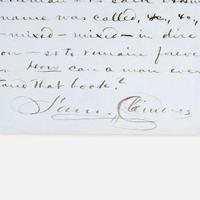 name was called, &c., &c.,
—mixed—mixed—in dire
on—so to remain forever
How can a man ever
stand that book?
Sam. Clemens